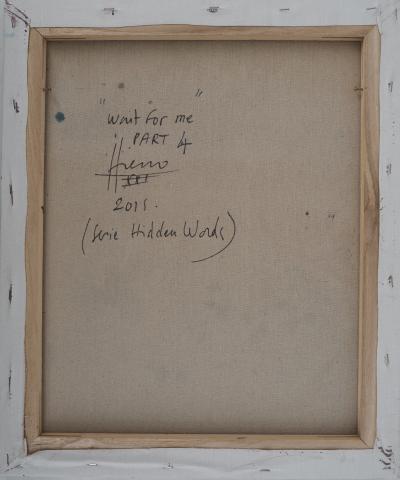 "Wait for me"
PART 4
2015.
(Serie Hidden Words)